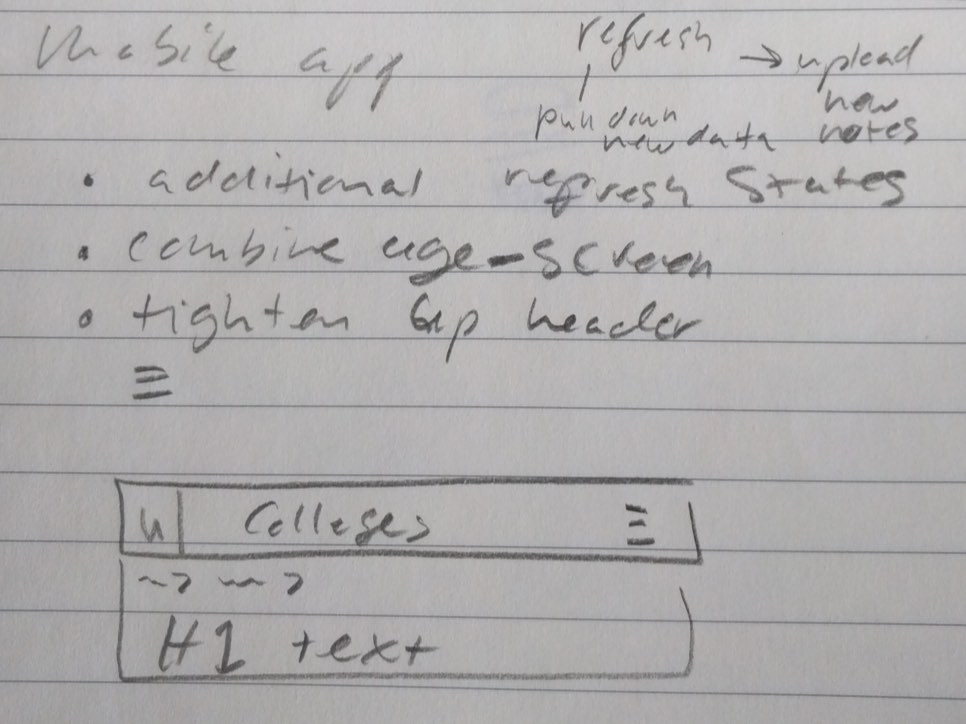 Mobile app
refresh → upload
new
pull down
new data notes
• additional refresh states
• combine age-screen
• tighten up header
≡
u Colleges ≡
~> ~>
H1 text